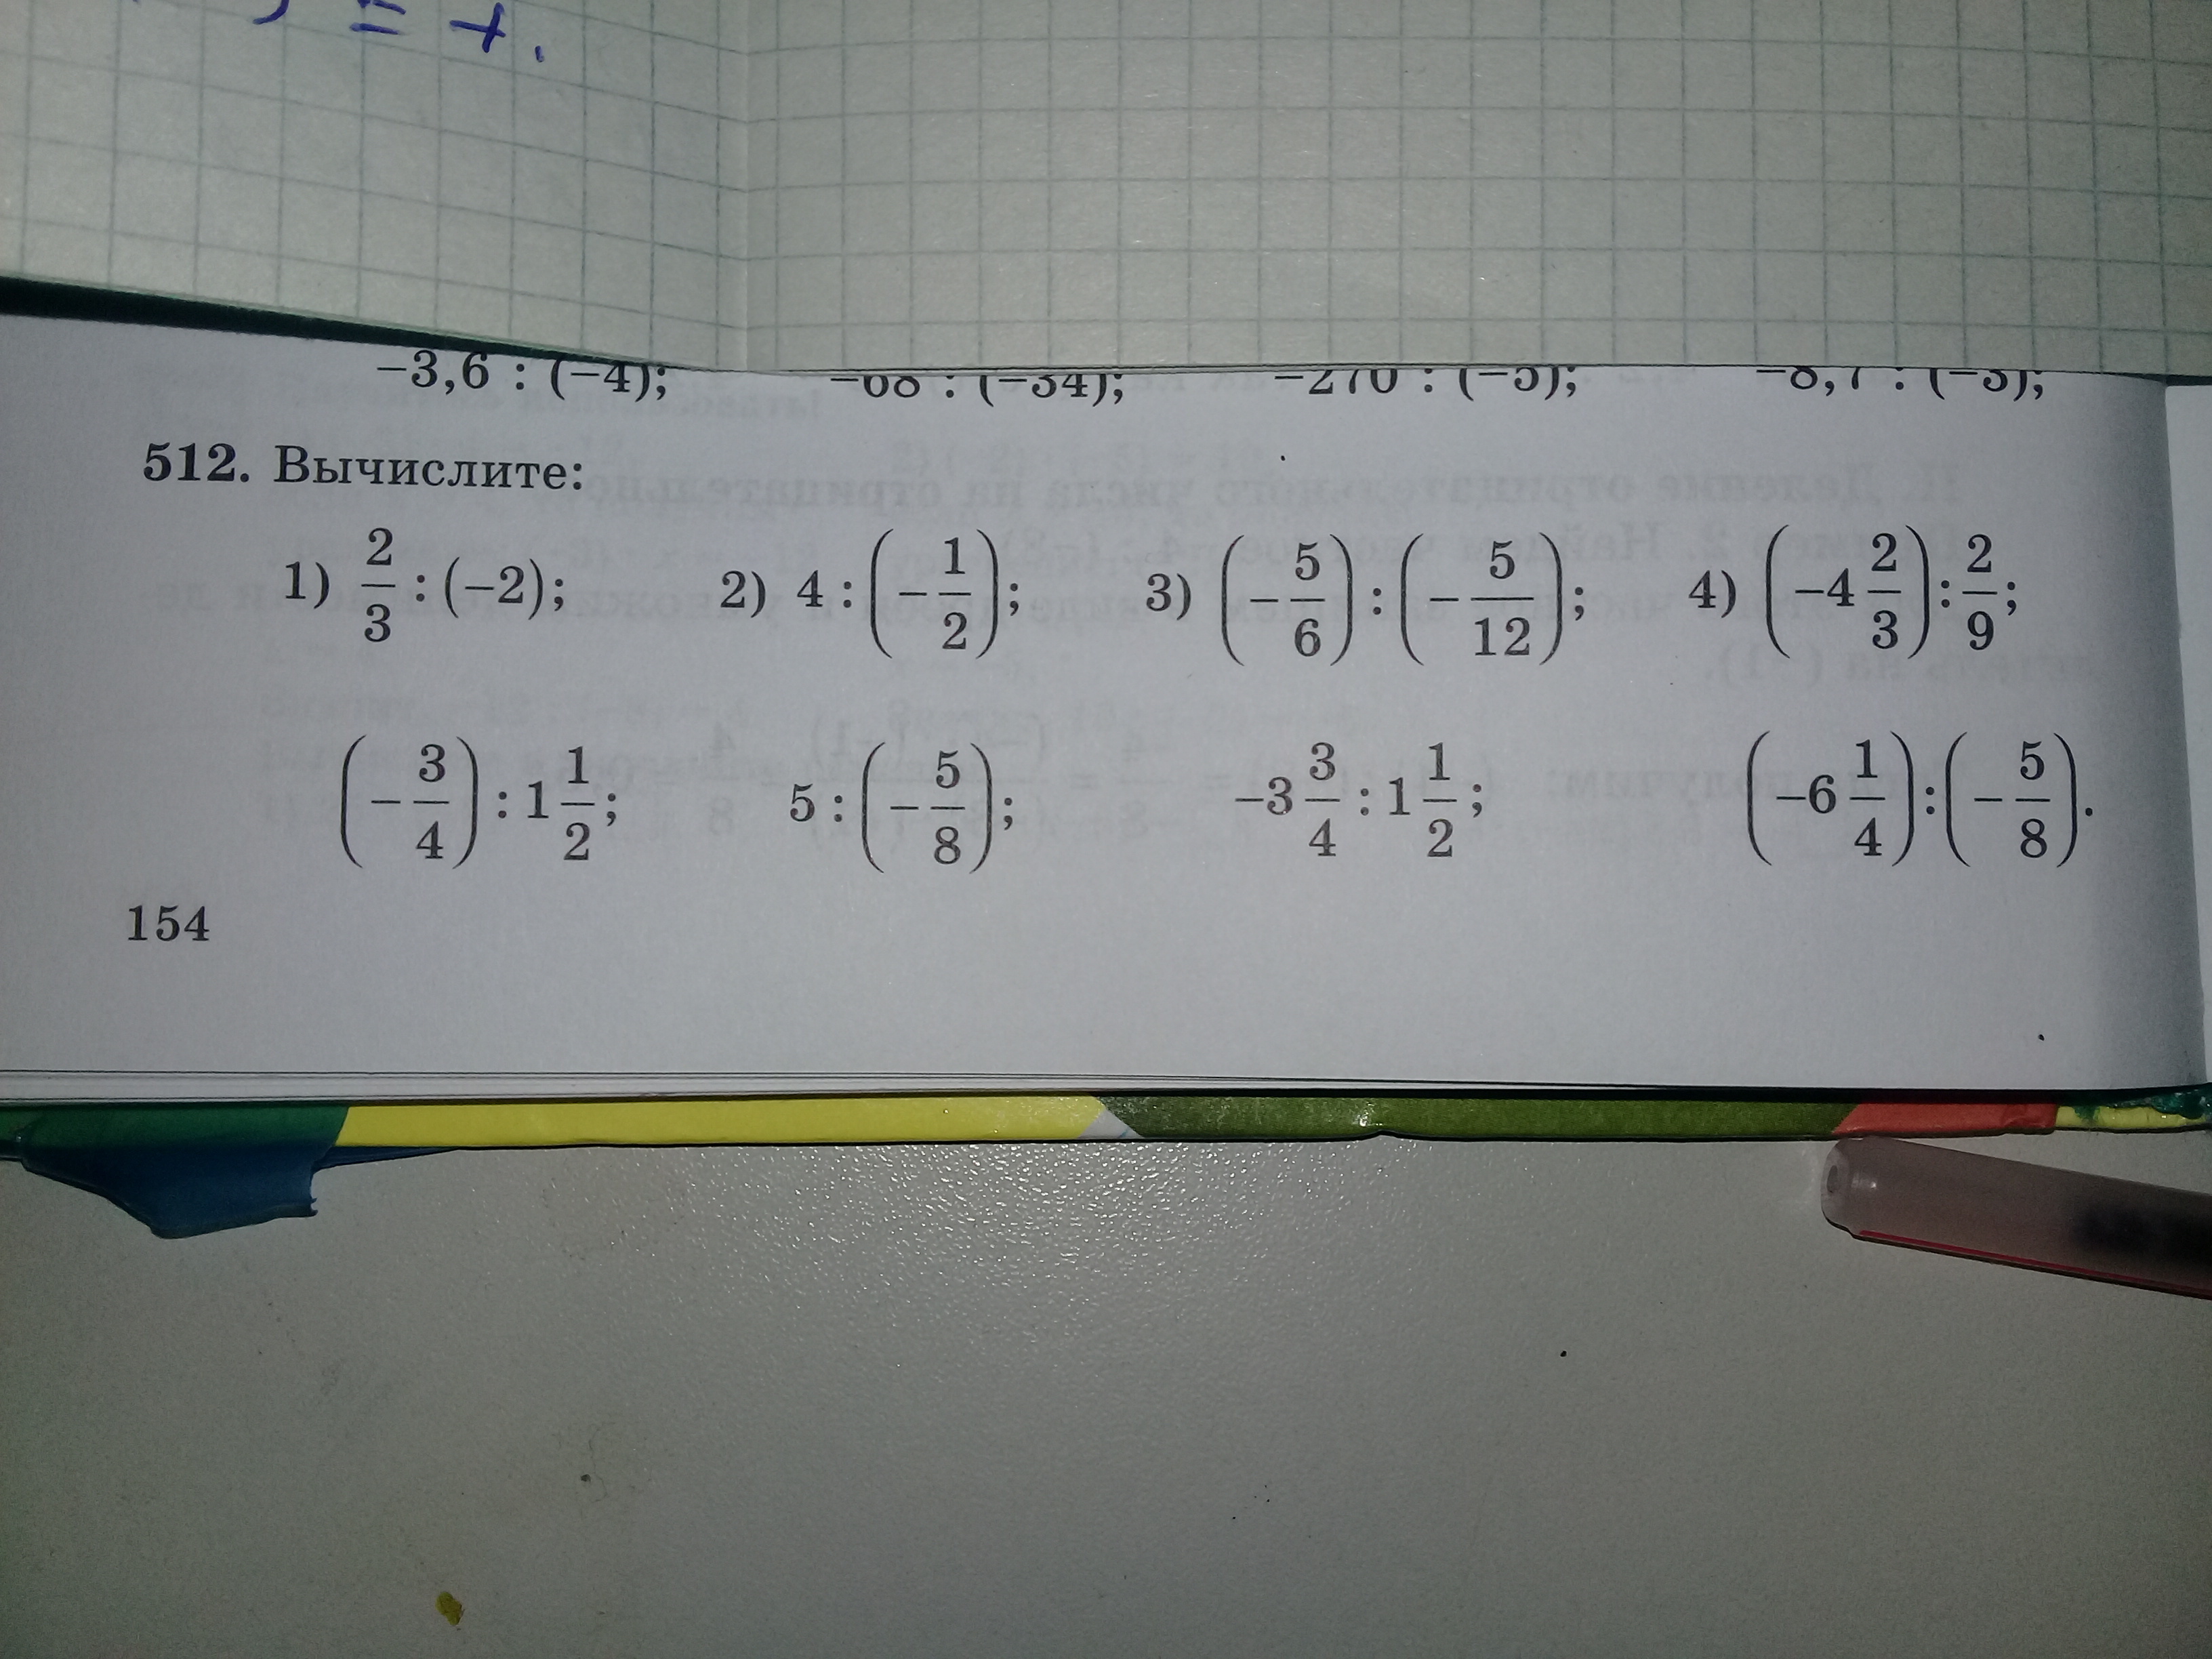 = +.
-3,6 : (-4); -68 : (-34); -270 : (-5); -8,7 : (-3);
512. Вычислите:
1) 2/3 : (-2); 2) 4 : (-1/2); 3) (-5/6) : (-5/12); 4) (-4 2/3) : 2/9;
(-3/4) : 1 1/2; 5 : (-5/8); -3 3/4 : 1 1/2; (-6 1/4) : (-5/8).
154